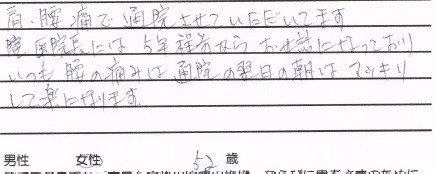 肩・腰痛で通院させていただいてます
院長には5年程前からお世話になっており
いつも腰の痛みは通院の翌日の朝はスッキリ
して楽になります。
男性 女性 52 歳